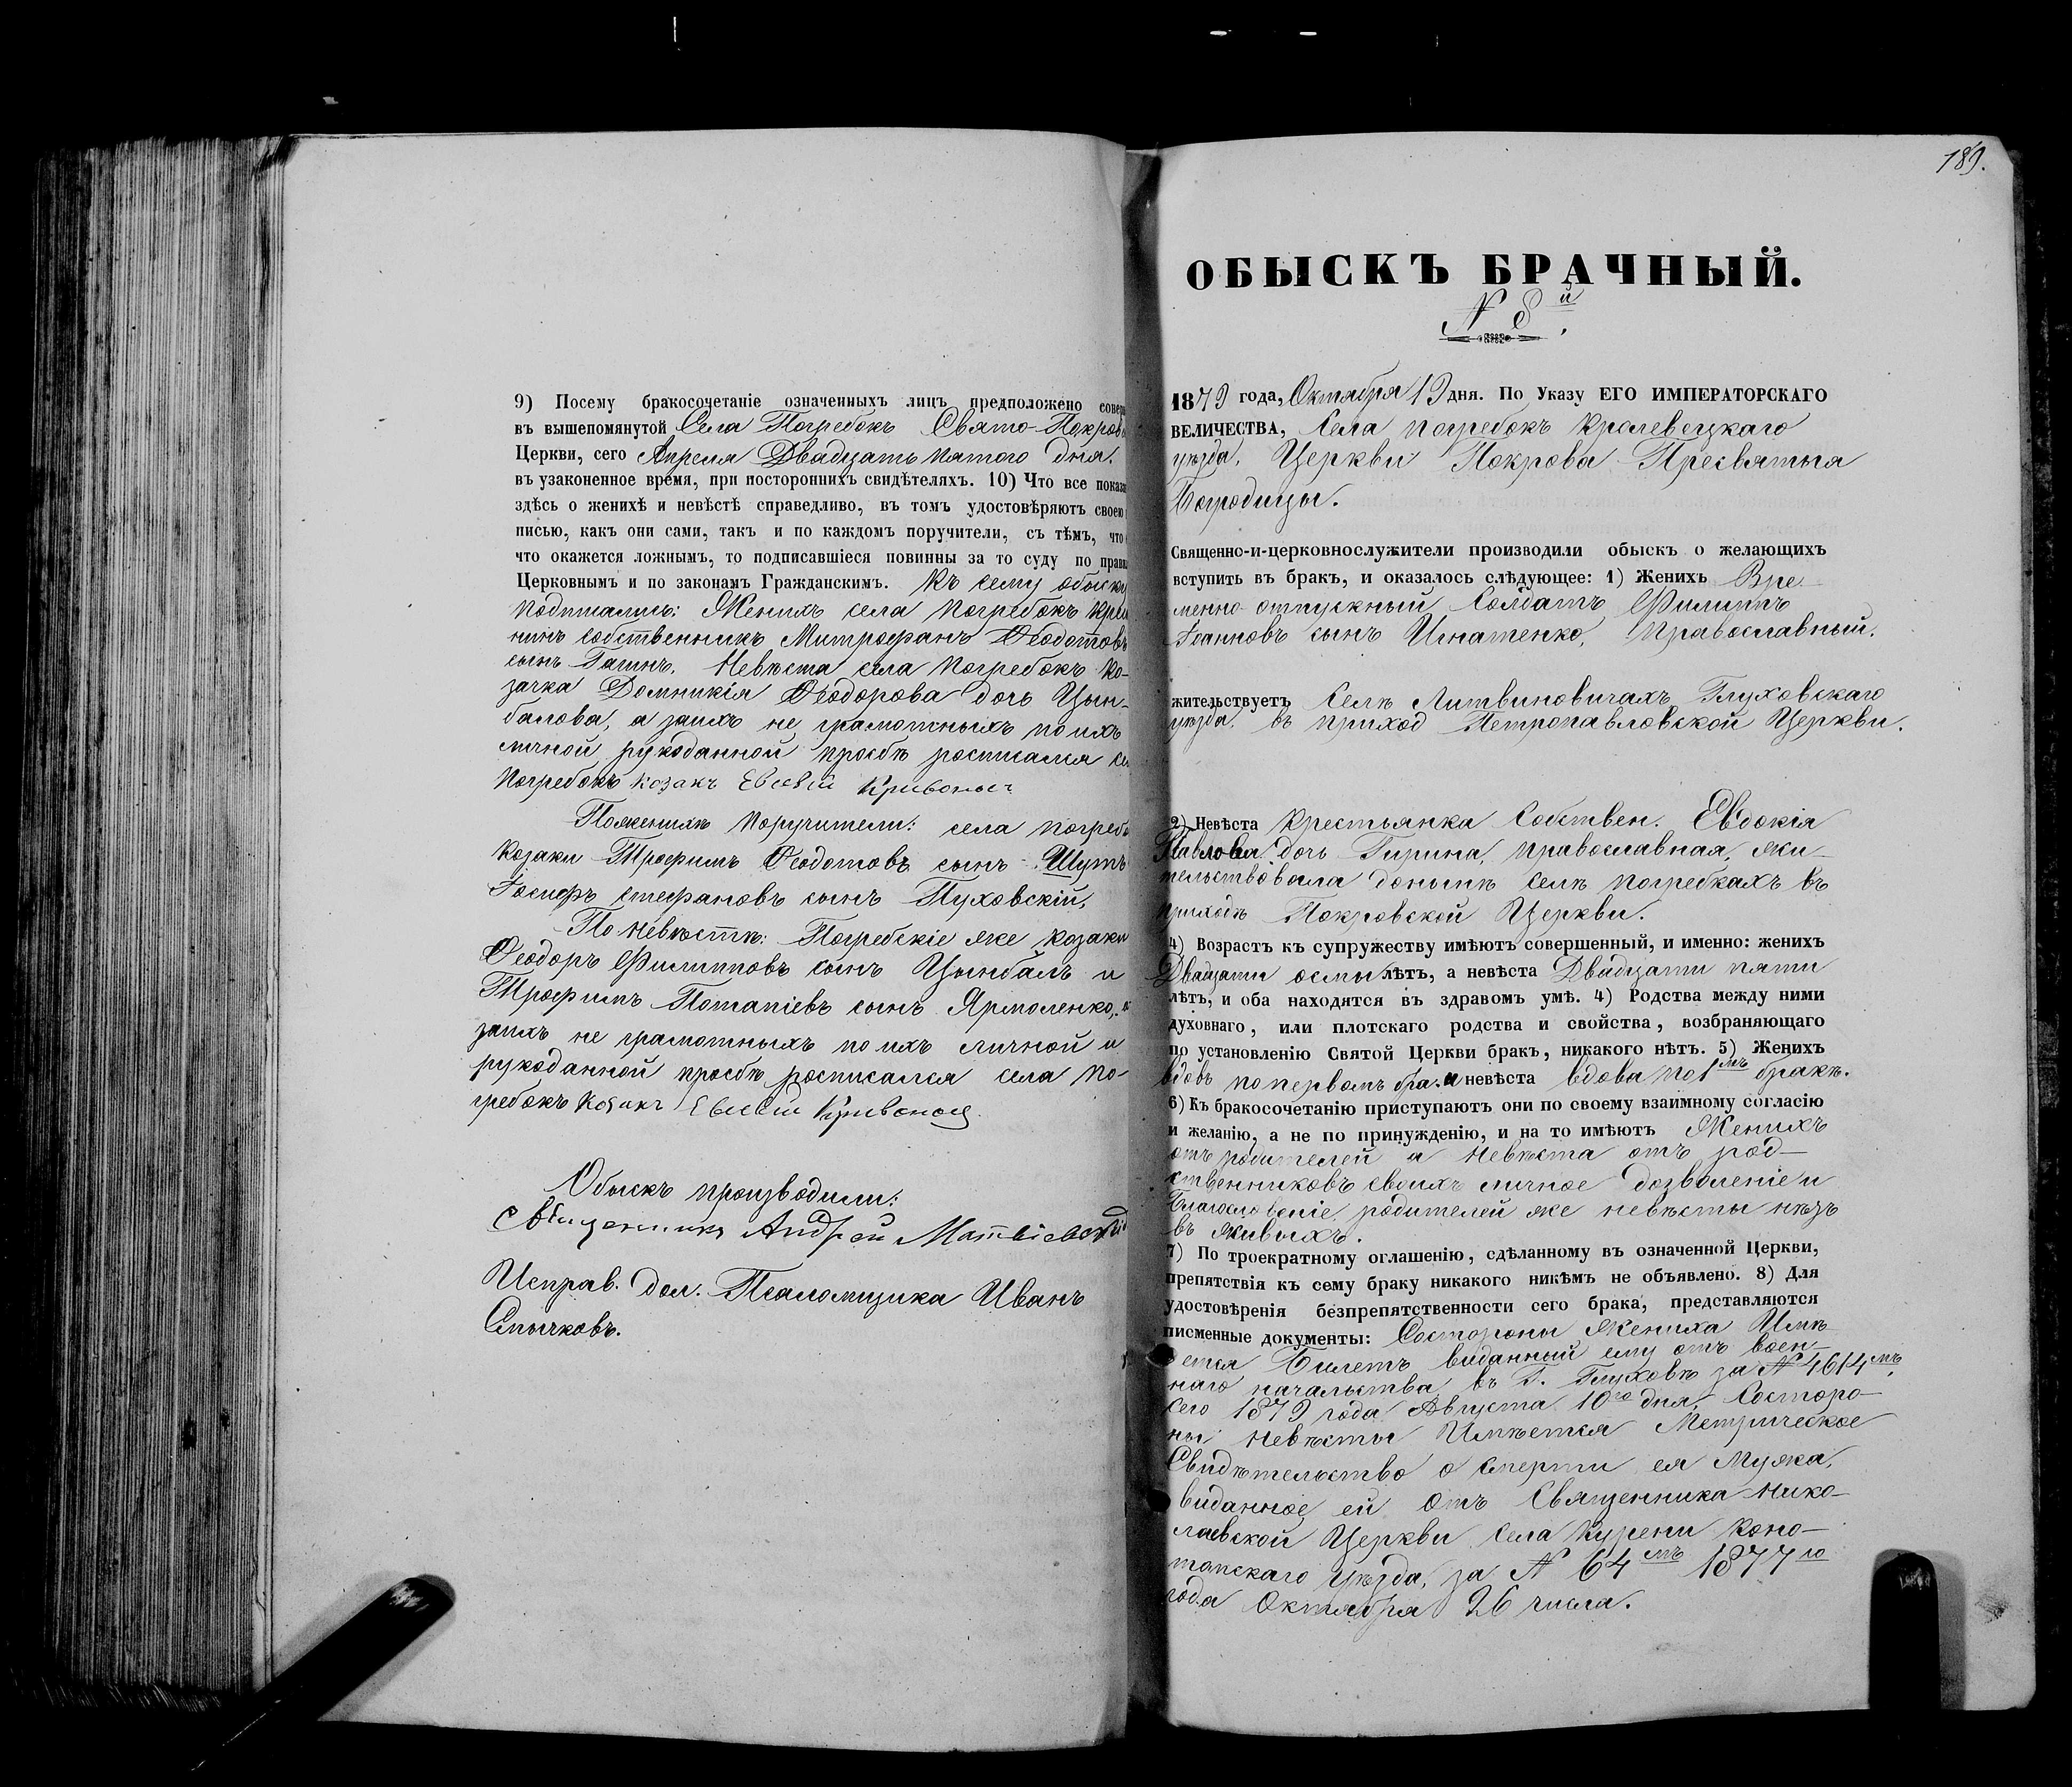 9) Посему бракосочетаніе означенныхъ лицъ предположено совер
въ вышепомянутой Села Погребокъ Свято-Покров
Церкви, сего Апреля Двадцать пятого дня.
въ узаконенное время, при постороннихъ свидѣтеляхъ. 10) Что все показ
здѣсь о женихѣ и невѣстѣ справедливо, въ томъ удостовѣряютъ своею
писью, какъ они сами, такъ и по каждомъ поручители, съ тѣмъ, что
что окажется ложнымъ, то подписавшіеся повинны за то суду по прави
Церковнымъ и по законамъ Гражданскимъ. Къ сему обыску
подписались: Женихъ села Погребокъ крес
нинъ собственникъ Митрофанъ Ѳеодотовъ
сынъ Гагинъ. Невѣста села Погребокъ ко-
зачка Домникія Ѳеодорова дочь Цын-
балова, а заихъ не грамотныхъ по ихъ
личной рукоданной просбѣ росписался се
Погребокъ козакъ Евсевій Кривоносъ
Поженихѣ поручители: села Погребъ
козаки Трофимъ Ѳеодотовъ сынъ Шутъ
Іосифъ Стефановъ сынъ Пуховскій,
По невѣстѣ: Погребскіе же козаки
Ѳеодоръ Филипповъ сынъ Цынбалъ и
Трофимъ Потапіевъ сынъ Ярмоленко, а
заихъ не грамотныхъ по ихъ личной и
рукоданной просбѣ росписался села По-
гребокъ Козакъ Евсевій Кривоносъ
Обыскъ производили:
Священникъ Андрей Матвіевскій
Исправ. дол. Псаломщика Иванъ
Смычковъ.
189.
ОБЫСКЪ БРАЧНЫЙ.
N 8й.
1879 года, Октября 19 дня. По Указу ЕГО ИМПЕРАТОРСКАГО
ВЕЛИЧЕСТВА, Села Погребокъ Кролевецкаго
уѣзда, Церкви Покрова Пресвятыя
Богродицы.
Священно-и-церковнослужители производили обыскъ о желающихъ
вступить въ бракъ, и оказалось слѣдующее: 1) Женихъ Вре
менно-отпускный Солдатъ Филиппъ
Іоанновъ сынъ Игнатенко, Православный.
жительствуетъ Селѣ Литвиновичахъ Глуховскаго
уѣзда, въ приход Петропавловской Церкви.
2) Невѣста крестьянка Собствен. Евдокія
Павлова дочь Гирина, православная, жи-
тельствовала донынѣ Селѣ Погребкахъ въ
приходѣ Покровской Церкви.
4) Возрастъ къ супружеству имѣютъ совершенный, и именно: женихъ
Двадцати осмы лѣтъ, а невѣста Двадцати пяти
лѣтъ, и оба находятся въ здравомъ умѣ. 4) Родства между ними
духовнаго, или плотскаго родства и свойства, возбраняющаго
по установленію Святой Церкви бракъ, никакого нѣтъ. 5) Женихъ
вдовъ попервомъ бра. и невѣста вдова по 1мъ бракѣ.
6) Къ бракосочетанію приступаютъ они по своему взаимному согласію
и желанію, а не по принужденію, и на то имѣютъ Женихъ
отъ родителей а Невѣста отъ род-
ственниковъ своихъ личное дозволеніе и
Благословеніе, родителей же невѣсты нѣтъ
въ живыхъ.
7) По троекратному оглашенію, сдѣланному въ означенной Церкви,
препятствія къ сему браку никакого никѣмъ не объявлено. 8) Для
удостовѣренія безпрепятственности сего брака, представляются
писменные документы: Состороны жениха Имѣ
ется Билетъ виданный ему отъ воен-
наго начальства въ Г. Глуховѣ за N 4614мъ,
сего 1879 года Августа 10го дня, Состоро-
ны Невѣсты Имѣется Метрическое
Свидѣтельство о Смерти ея Мужа,
виданное ей отъ Священника Нико-
лаевской Церкви села Курени Коно-
топскаго уѣзда, за N 64мъ 1877го
года Октября 26 числа.